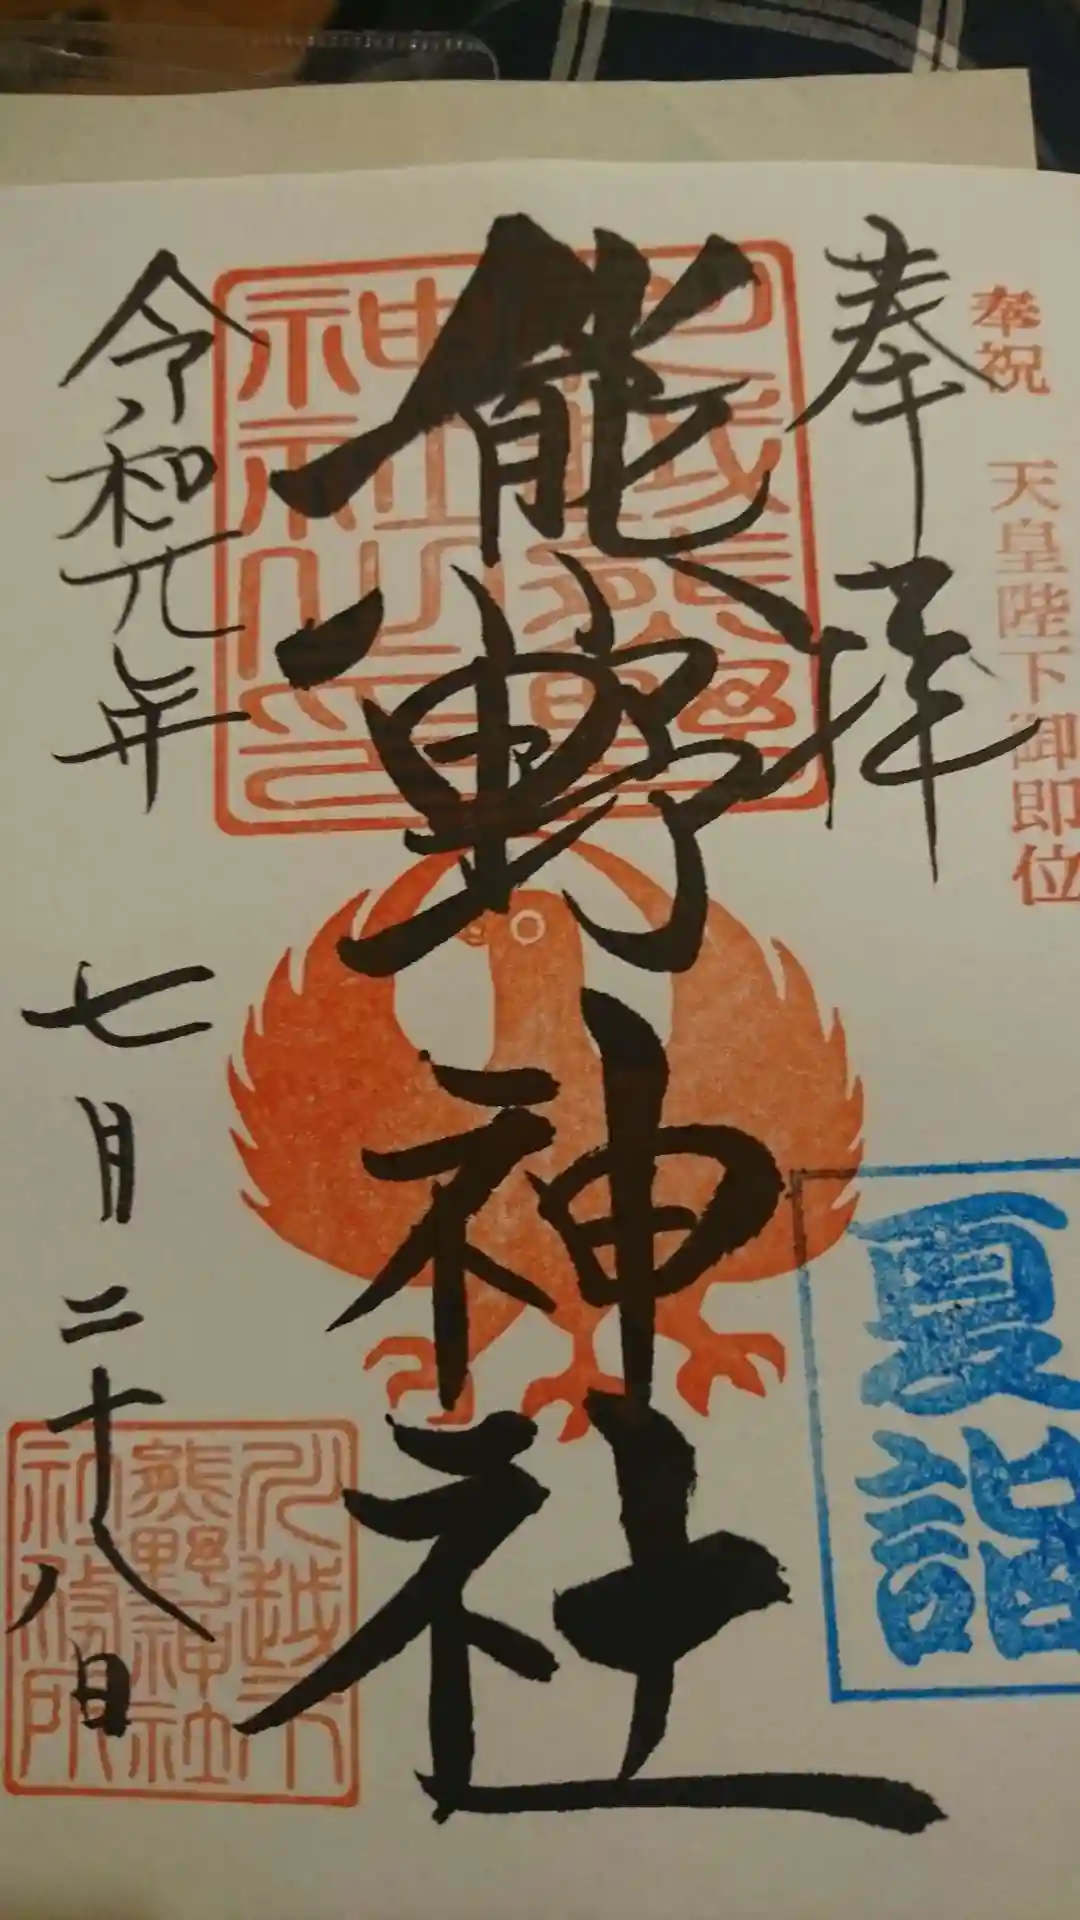 奉祝 天皇陛下御即位
奉拝
熊野神社
令和元年 七月二十八日
川越熊野神社之印
夏詣
川越 熊野神社 社務所